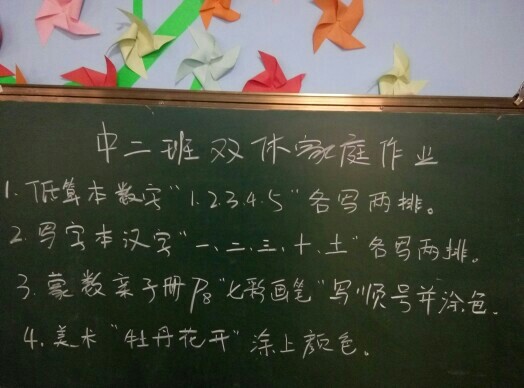 中二班双休家庭作业
1.低算本数字“1.2.3.4.5”各写两排。
2.写字本汉字“一、二、三、十、土”各写两排。
3.蒙数亲子册P8“七彩画笔”写顺号并涂色.
4.美术“牡丹花开”涂上颜色。